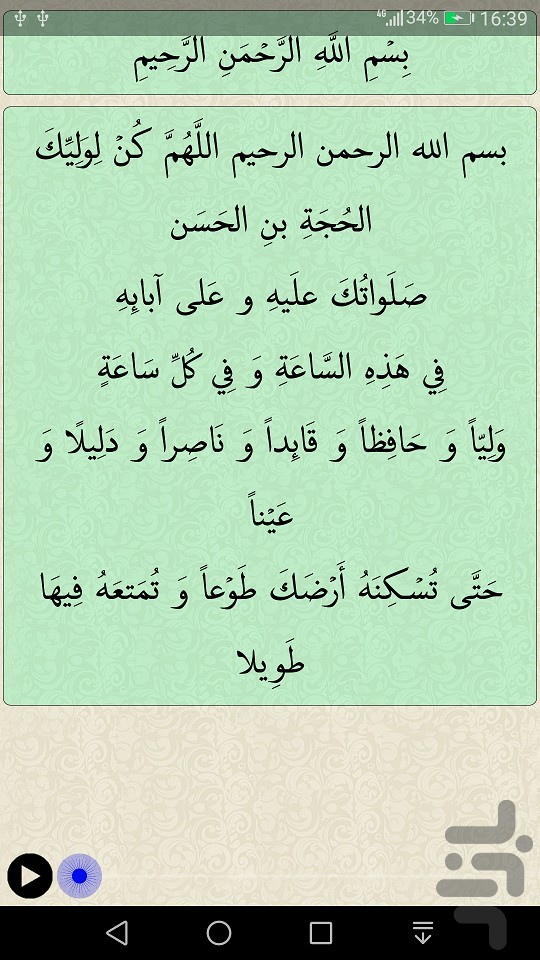 4G 34% 16:39
بِسْمِ اللَّهِ الرَّحْمَنِ الرَّحِيمِ
بسم الله الرحمن الرحيم اللَّهُمَّ كُنْ لِوَلِيِّكَ
الحُجَةِ بنِ الحَسَن
صَلَواتُكَ علَيهِ و عَلى آبائِهِ
فِي هَذِهِ السَّاعَةِ وَ فِي كُلِّ سَاعَةٍ
وَلِيّاً وَ حَافِظاً وَ قَائِداً وَ نَاصِراً وَ دَلِيلًا وَ
عَيْناً
حَتَّى تُسْكِنَهُ أَرْضَكَ طَوْعاً وَ تُمَتعَهُ فِيهَا
طَوِيلا